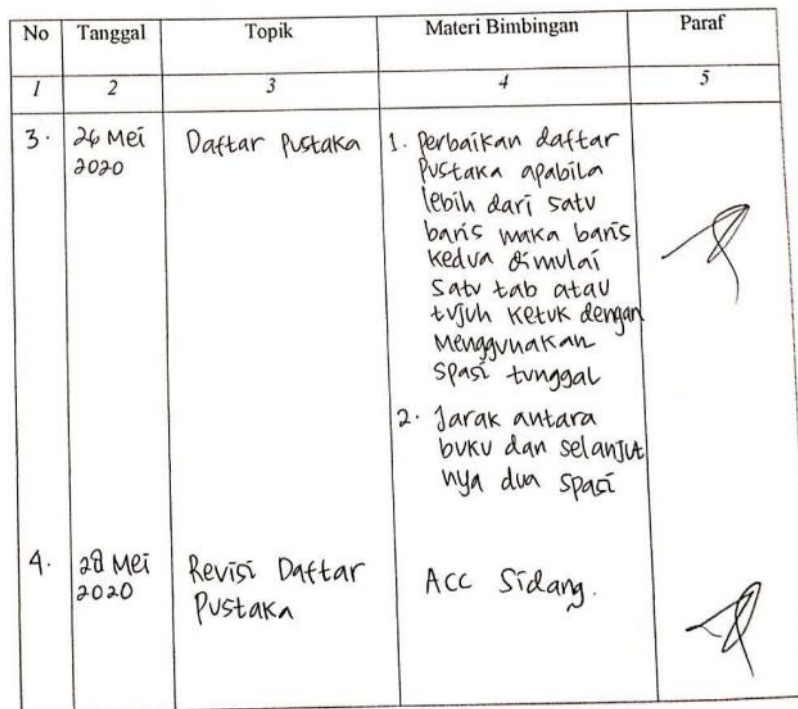 No Tanggal Topik Materi Bimbingan Paraf
1 2 3 4 5
3. 26 Mei Daftar Pustaka 1. Perbaikan daftar
2020 Pustaka apabila
lebih dari satu
baris maka baris
kedua dimulai
satu tab atau
tujuh ketuk dengan
Menggunakan
Spasi tunggal
2. Jarak antara
buku dan selanjut
nya dua spasi
4. 28 Mei Revisi Daftar Acc Sidang.
2020 Pustaka